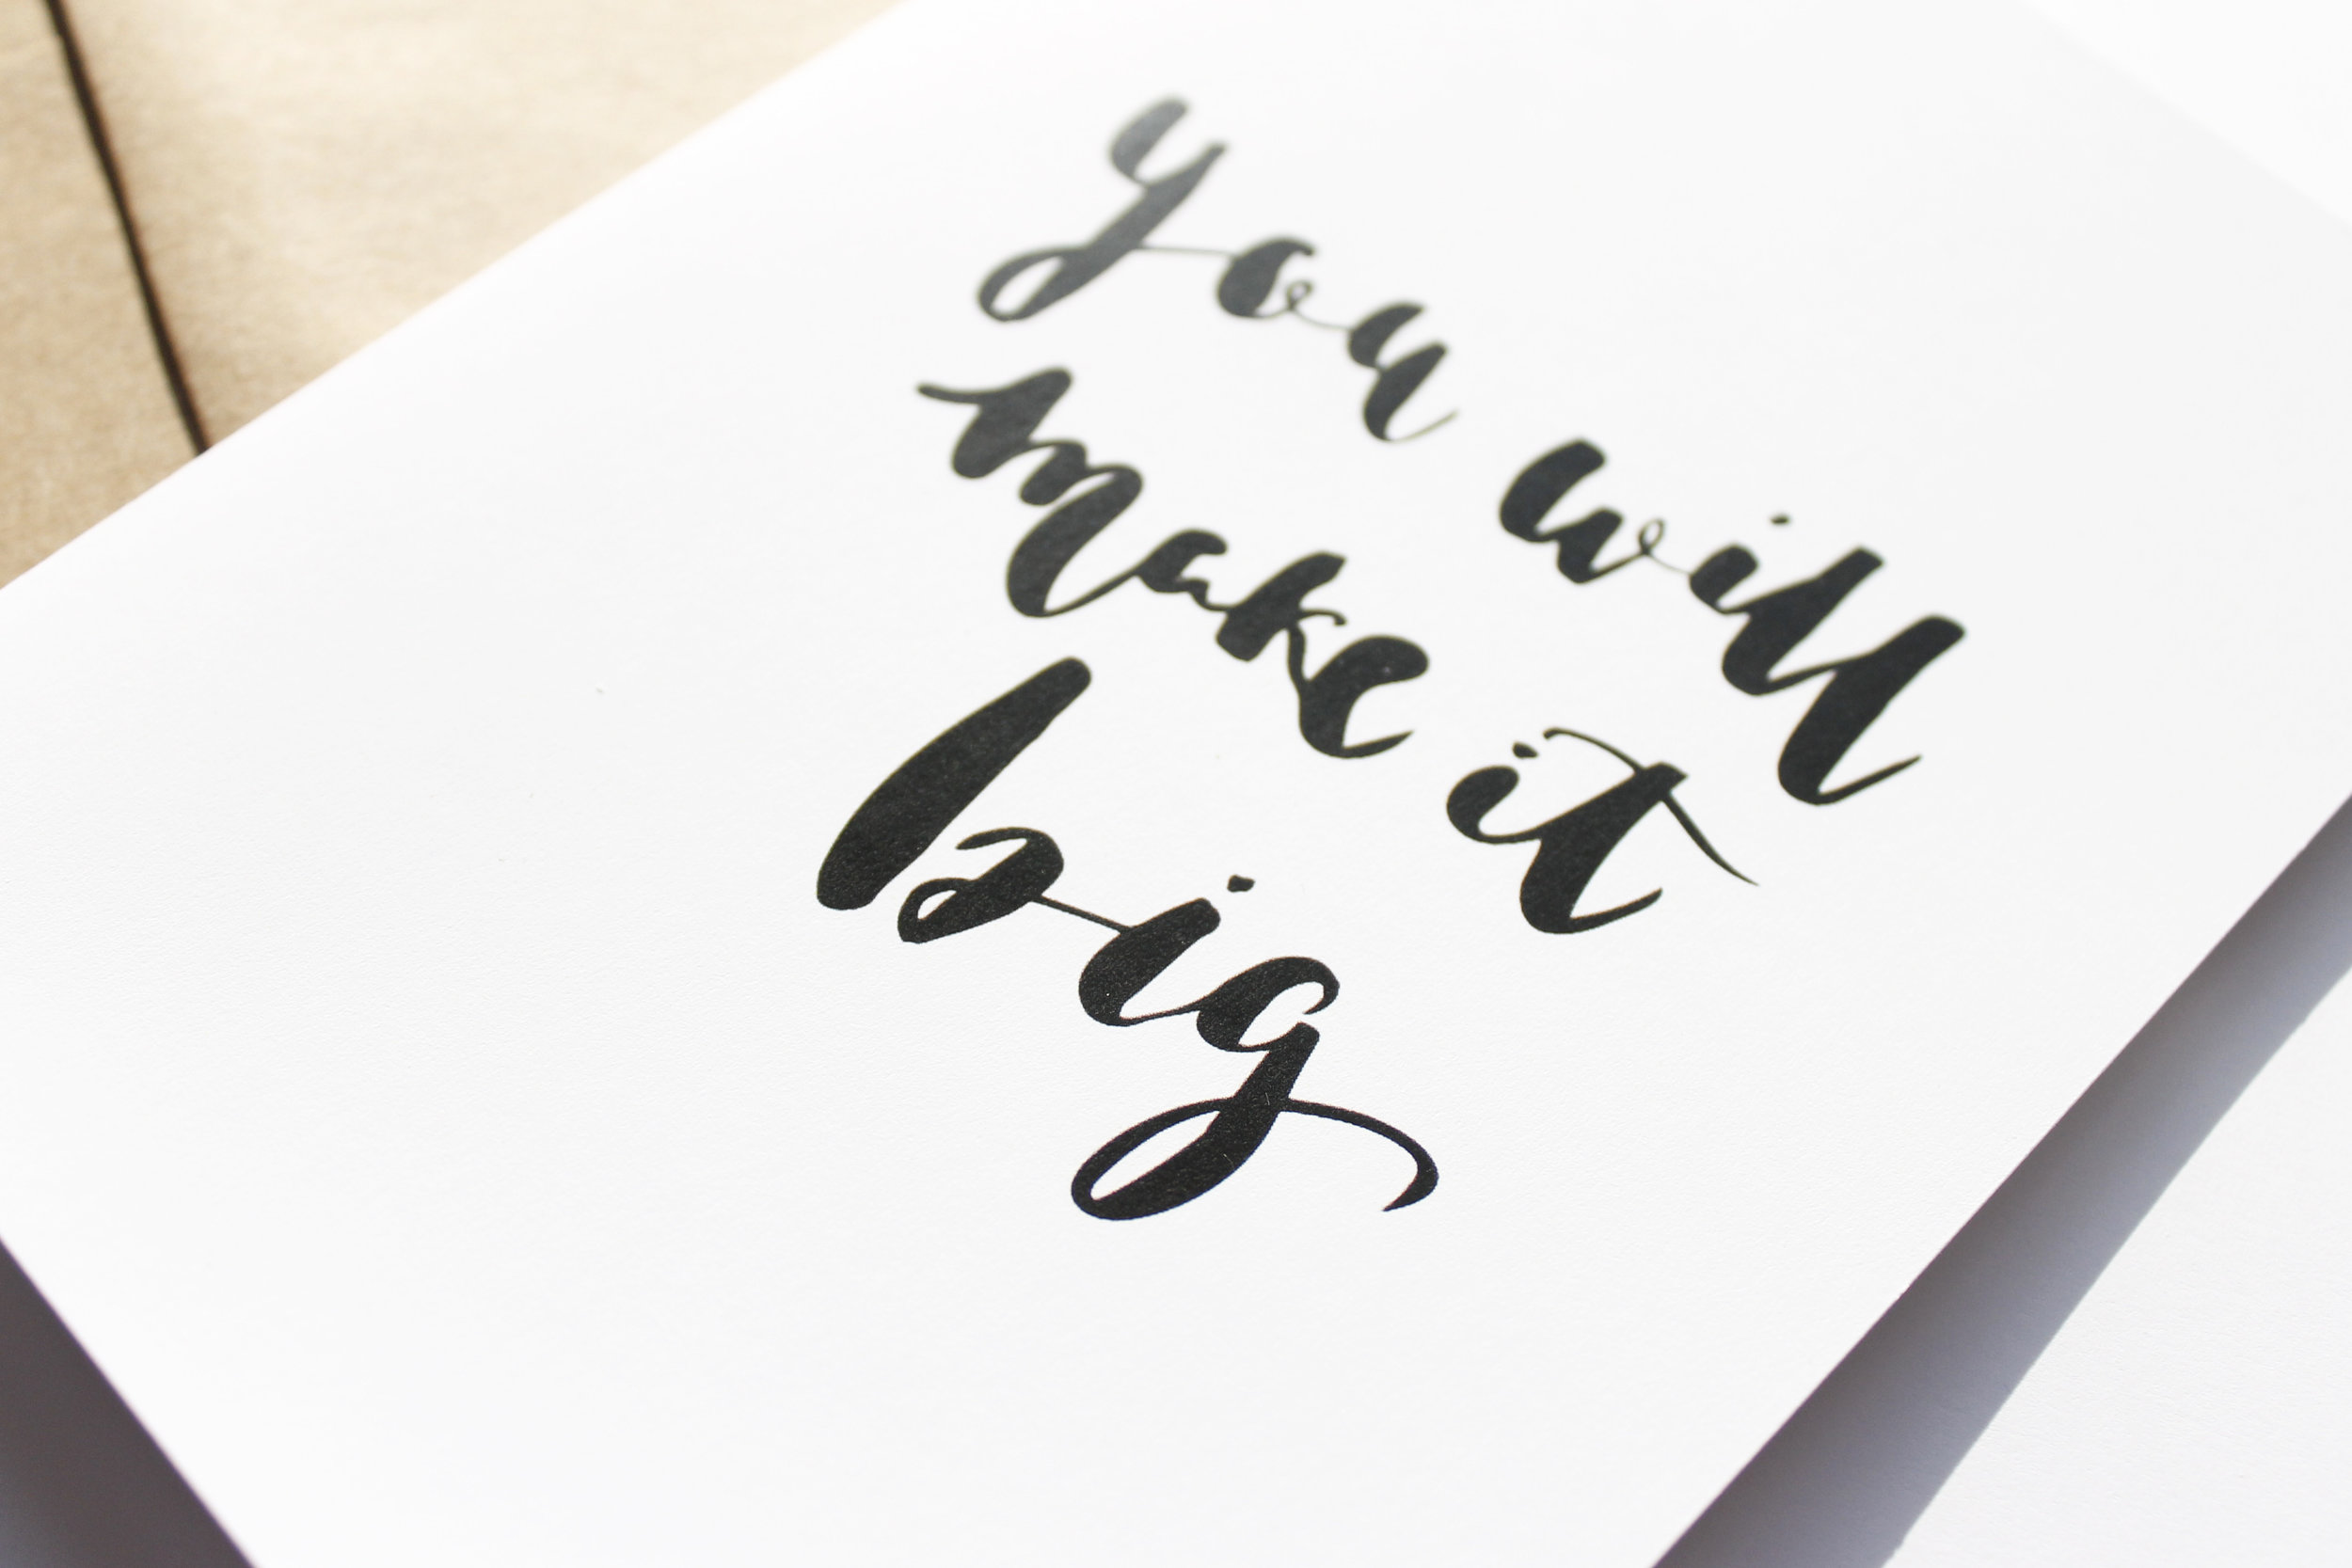 you will
make it
big